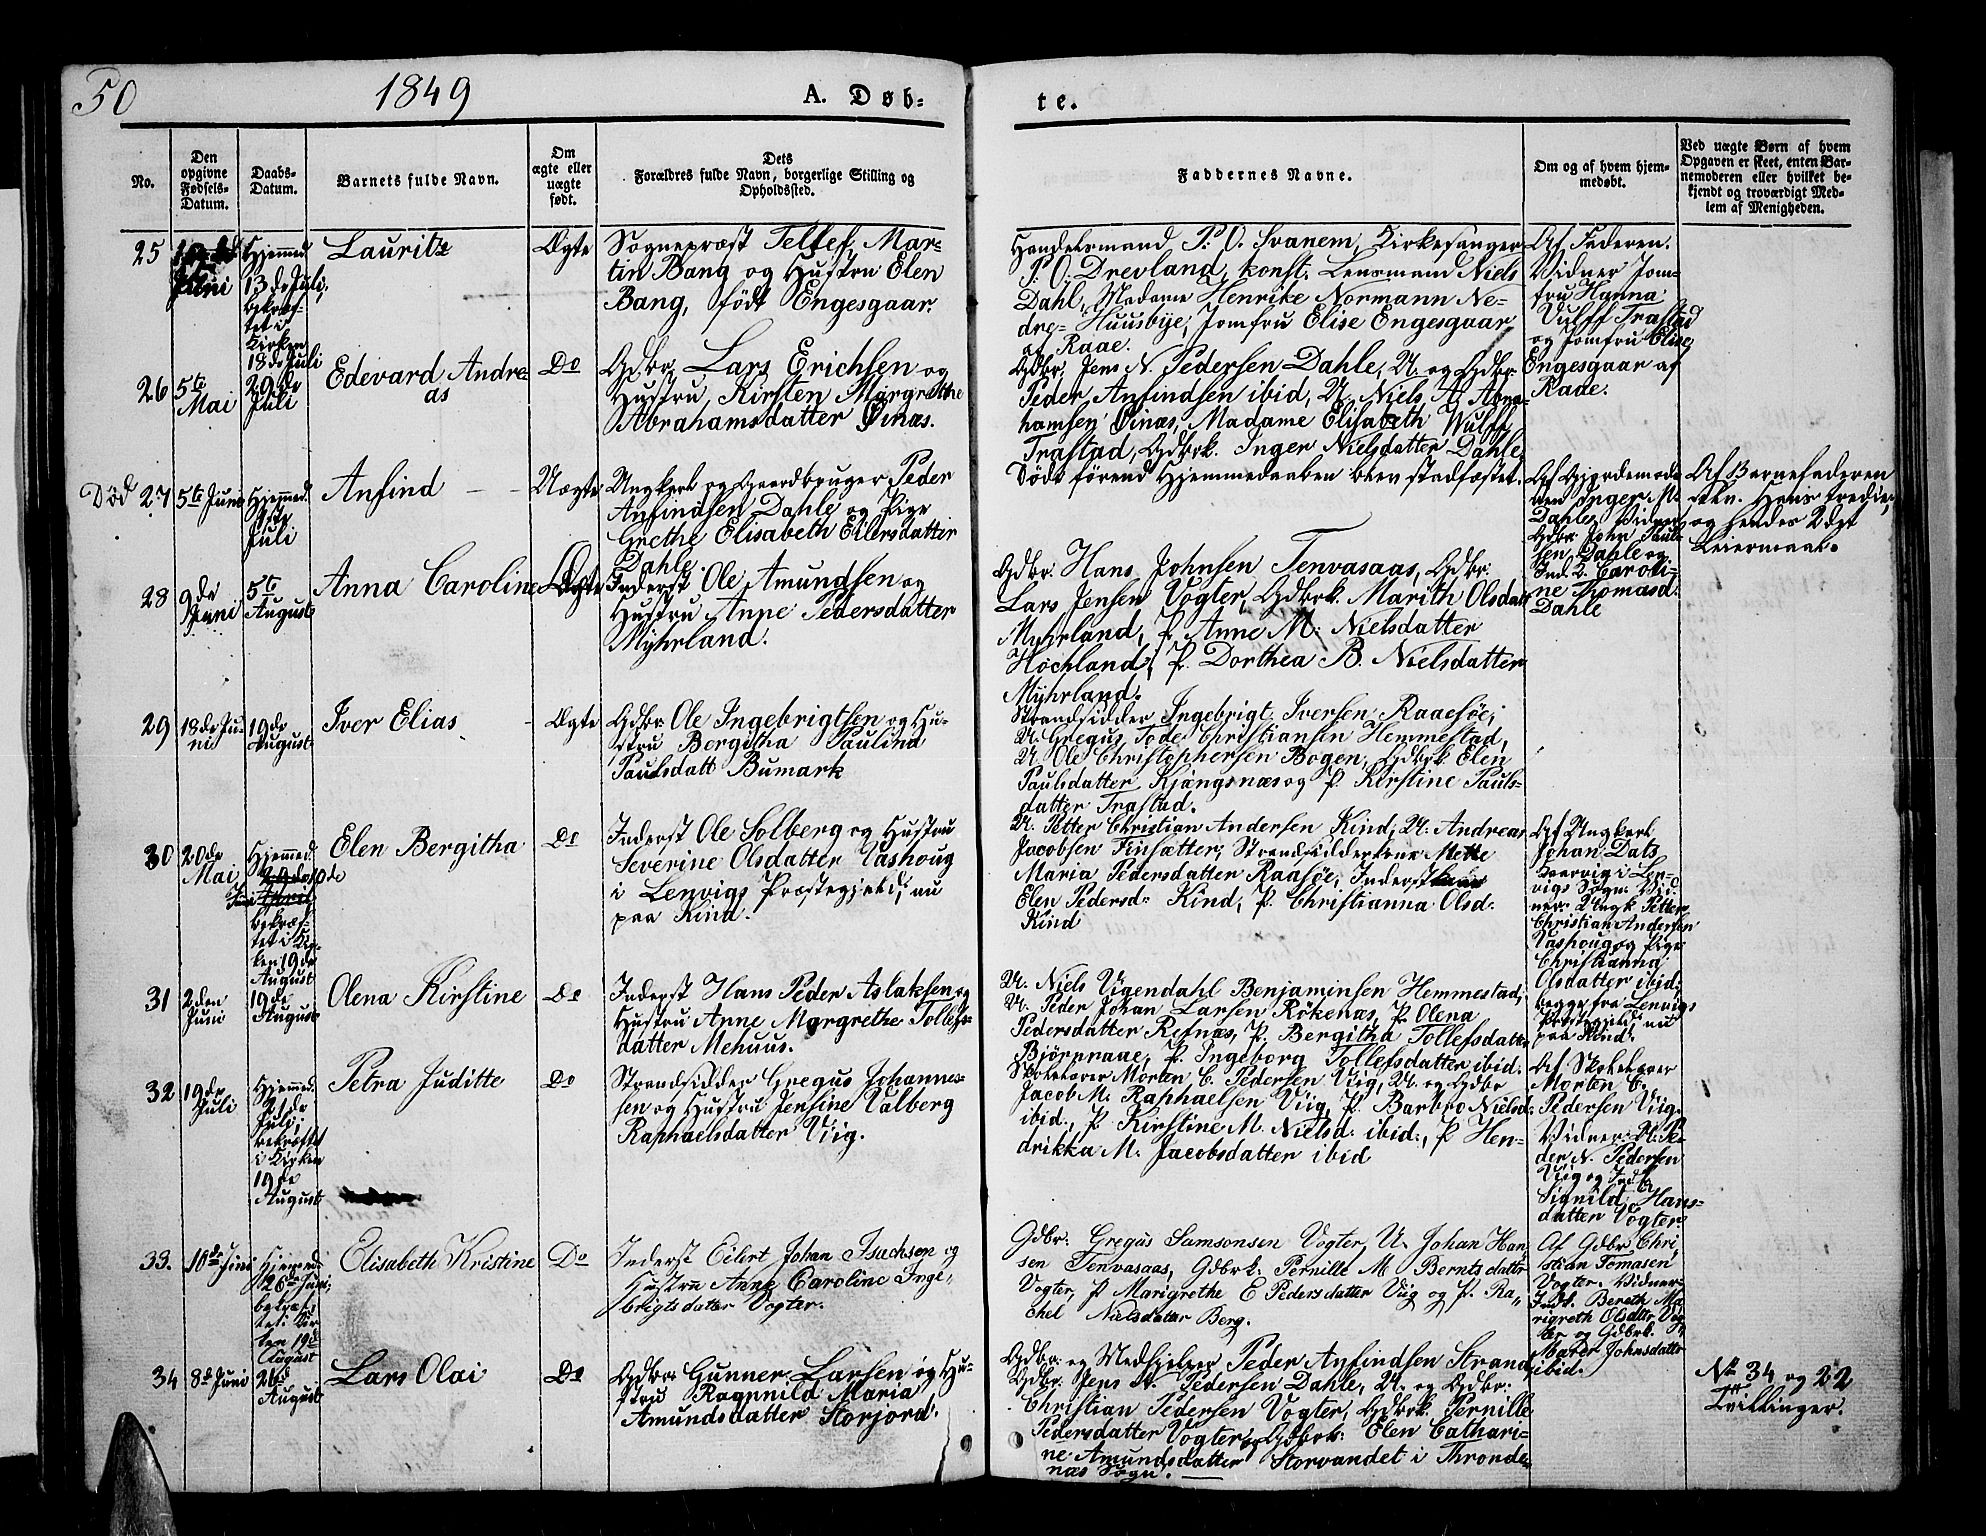 50
1849
A. Døb-
te.
No.
Den
opgivne
Fødsels-
Datum.
Daabs-
Datum.
Barnets fulde Navn.
Om
ægte eller
uægte
født.
Dets
Forældres fulde Navn, borgerlige Stilling og
Opholdssted.
Faddernes Navne.
Om og af hvem hjem-
medøbt.
Ved uægte Børn af hvem
Opgaven er skeet, enten Bar-
nemoderen eller hvilket be-
kjendt og troværdigt Med-
lem af Menigheden.
25
Juni
Hjemmed.
13de Juli,
bekræf-
tet i
Kirken
18de Juli
Lauritz
Ægte
Sognepræst Tellef Mar-
tin Bang og Hustru Elen
Bang, født Engesgaar.
Handelsmand P. O. Svanem, Kirkesanger
P. O. Drevland, konst. Lensmand Niels
Dahl, Madame Henrike Normann Ne-
dre-Huusbye, Jomfru Elise Engesgaar
af Raae.
Af Faderen.
Vidner Jom-
fru Hanna
Vulff Trastad
og Jomfru Elise
Engesgaar af
Raae.
26
5te
Mai
29de
Juli
Edevard Andre-
as
Do
Gdbr. Lars Erichsen og
Hustru Kirsten Margrethe
Abrahamsdatter Øinæs.
Gdbr. Jens N. Pedersen Dahle, U. og Gdbr.
Peder Anfindsen ibid, U. Niels A. Abra-
hamsen Øinæs, Madame Elisabeth Wulff
Trastad, Gdbrk. Inger Nielsdatter Dahle
Død 27
5te Juni
Hjemmed.
Juli
Anfind
Uægte
Ungkarl og Gaardbruger Peder
Anfindsen Dahle og Pige
Grethe Elisabeth Eilersdatter
Dahle.
Døde førend Hjemmedaaben blev stadfæstet.
Af Gjordemode-
ren Inger M.
Dahle, Vidner
Gdbr. John Paul-
sen Dahle og
Ind. Q. Caroli-
ne Thomasd.
Dahle
Af Barnefaderen
Hans tredie,
og hendes 2det
Leiermaal.
28
9de
Juni
5te
August
Anna Caroline
Ægte
Inderst Ole Amundsen og
Hustru Anne Pedersdatter
Myhrland.
Gdbr. Hans Johnsen Tenvasaas, Gdbr.
Lars Jensen Vogter, Gdbrk. Marith Olsdatt
Myhrland, P. Anne M. Nielsdatter
Hochland, P. Dorthea B. Nielsdatter
Myhrland.
29
18de Ju-
ni
19de
August
Iver Elias
Ægte
Gdbr. Ole Ingebrigtsen og Hu-
stru Bergitha Paulina
Paulsdatt Bumark
Strandsidder Ingebrigt Iversen Raaesøe,
U. Gregus Tode Christiansen Hemmestad,
U. Ole Christophersen Bogen, Gdbrk Elen
Paulsdatter Kjøngsnæs og P. Kirstine Pauls-
datter Trastad.
30
20de
Mai
Hjemmed.
bekræf-
tet i Kir-
ken 19de
August
Elen Bergitha
Do
Inderst Ole Solberg og Hustru
Severine Olsdatter Vashoug
i Lenvigs Præstegjeld, nu
paa Kind.
U. Petter Christian Andersen Kind, U. Andreas
Jacobsen Finsætter, Strandsidderkone Mette
Maria Pedersdatter Raasøe, Inderst
Elen Pedersd. Kind, P. Christianna Olsd.
Kind
Af Ungkarl
Johan Dats
Kvarvig i Len-
vigs Sogn. Vid-
ner: Ungk. Petter
Christian Andersen
Vashoug og Pige
Christianna
Olsdatter ibid.
begge fra Lenvigs
Præstegjeld, nu
paa Kind.
31
2den
Juni
19de
August
Olena Kirstine
Do
Inderst Hans Peder Aslaksen og
Hustru Anne Margrethe Tollefs-
datter Mehuus.
U. Niels Vigendahl Benjaminsen Hemmestad,
U. Peder Johan Larsen Rökenæs, P. Olena
Pedersdatter Refnæs, P. Bergitha Tollefsdatter
Björnraae, P. Ingeborg Tollefsdatter ibid.
32
19de
Juli
Hjemmed.
21de
Juli,
bekræftet
i Kirken
19de
August
Petra Juditte
Do
Strandsidder Gregus Johannes-
sen og Hustru Jensine Valberg
Raphaelsdatter Viig.
Skolelærer Morten C. Pedersen Viig, U. og Gdbr
Jacob M. Raphaelsen Viig, P. Barbro Nielsd.
ibid., P. Kirstine M. Nielsd. ibid., P. Hen-
drikka M. Jacobsdatter ibid
Af Skolelærer
Morten C.
Pedersen Viig.
Vidner: U. Pe-
der N. Pedersen
Viig og Indk.
Signild Hans-
datter Vogter.
33.
10de Juni
Hjemmed.
26de Juni,
bekræf-
tet i Kir-
ken 19de
August
Elisabeth Kristine
Do
Inderst Eilert Johan Isachsen og
Hustru Anne Caroline Inge-
brigtsdatter Vogter.
Gdbr. Gregus Samsonsen Vogter, U. Johan Han-
sen Tenvasaas, Gdbrk. Pernille M. Berntsdatter
Vogter, P. Marigrethe E Pedersdatter Viig og P. Ra-
chel Nielsdatter Berg.
Af Gdbr. Chri-
stian Tomasen
Vogter. Vidner
Indk. Bereth Ma-
rigreth Olsdatter Vog-
ter og Gdbrk.
Maren Johnsdatter
ibid.
34
8de Juni
26de
August
Lars Olai
Do
Gdbr. Gunner Larsen og Hu-
stru Ragnnild Maria
Amundsdatter Storjord.
Gdbr. og Medhjelper Peder Anfindsen Strand,
Gdbr. Jens N. Pedersen Dahle, U. og Gdbr.
Christian Pedersen Vogter, Gdbrk. Pernille
Pedersdatter Vogter, Gdbrk. Elen Cathari-
ne Amundsdatter Storvandet i Thronde-
næs Sogn.
No 34 og 22
Tvillinger.